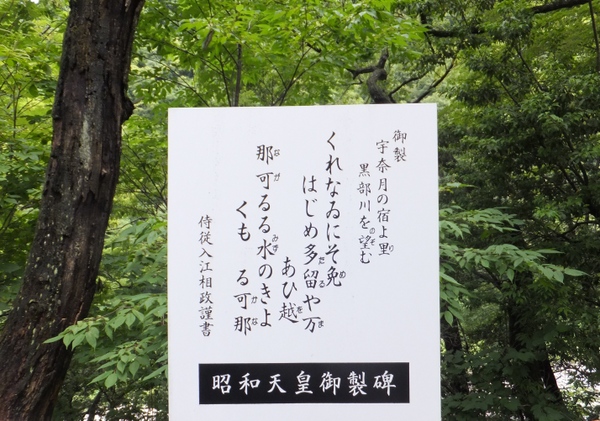 御製
宇奈月の宿よ里
黒部川を望む
くれなゐにそ免
はじめ多留や万
あひ越
那可るる水のきよ
くも る可那
侍従入江相政謹書
昭和天皇御製碑